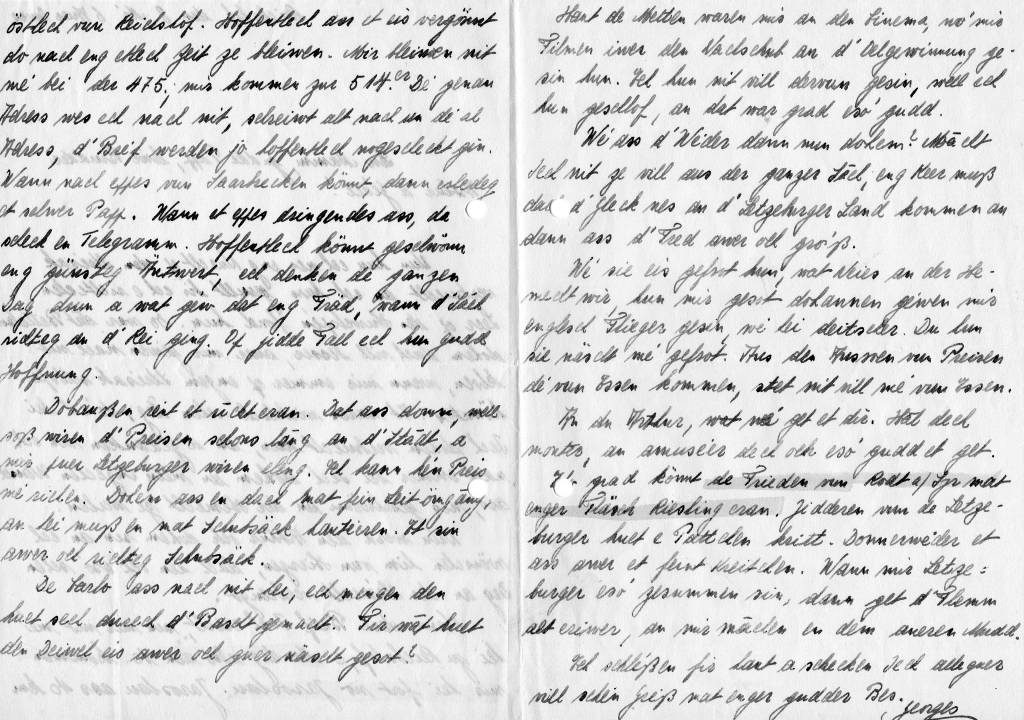 östlech vum Reichshof. Hoffentlech ass et eis vergönnt
do nach eng etlech Zeit ze bleiwen. Mir bleiwen nit
mé bei der 475., mir kommen zur 514.er Dé genau
Adress wés ech nach nit, schreiwt alt nach un dé al
Adress, d'Breif werden jo hoffentlech nogescheckt gin.
Wann nach eppes vun Saarbrecken könnt, dann erledeg
et selwer Papp. Wann et eppes dringendes ass, da
scheck en Telegramm. Hoffentlech könnt geschwönn
eng günsteg Äntwert, ech denken dé ganzen
Dag drun a wat géw dat eng Fräd, wann d'Säch
richteg an d'Rei ging. Op jidde Fall ech hun gudd
Hoffnung.
Dobaußen rënt et
Dat ass domm, well
soß wiren d'Preisen schons läng an d'Städt, a
mir puer Letzeburger wiren eleng. Ech kann kén Preis
mé richen. Dohém ass en dach mat fein Leit ömgäng,
an hei muß en mat Schubsäck hantéieren. Et sin
awer och richteg Schubsäck.
De Carlo ass nach nit hei, ech mengen den
huet sech durech d'Bascht gemacht. Fir wat huet
den Deiwel eis awer och guer näscht gesot?
Haut de Metten waren mir an den Cinema, wo' mir
Filmen iwer den Nachschub an d'Oelgewinnung ge-
sin hun. Ech hun nit vill dervun gesin, well ech
hun geschlof, an dat war grad esó gudd.
Wé ass d'Wéder dann nun dohém? Mächt
Iech nit ze vill aus der ganzer Säch, eng Keer muß
dach d'Gleck nes an d'Letzeburger Land kommen an
dann ass d'Fred awer och gróß.
Wé sie eis gefrot hun, wat Neies an der He-
mecht wir, hun mir gesot dohannen géwen mir
englesch Flieger gesin, wé hei deitscher. Du hun
sie näscht mé gefrot. Aus den Aussoen vun Preisen
dé vun Essen kommen, stét nit vill mé vun Essen.
An du Arthur, wat mé get et dir. Hal dech
monter, an amuséier dech och esó gudd et get.
grad könnt de Frieden vun
mat
enger Fläsch Riesling eran. Jidderen vun de Letze-
burger huet e Pättchen kritt. Donnerwéder et
ass awer et feint Kreitchen. Wann mir Letze-
burger esó zesummen sin, dann get d'Flemm
alt eriwer, an mir mächen en dem aneren Mudd.
Ech schléßen fir haut a schecken Iech alleguer
vill schéin Gréß mat enger gudder Bes.
Georges